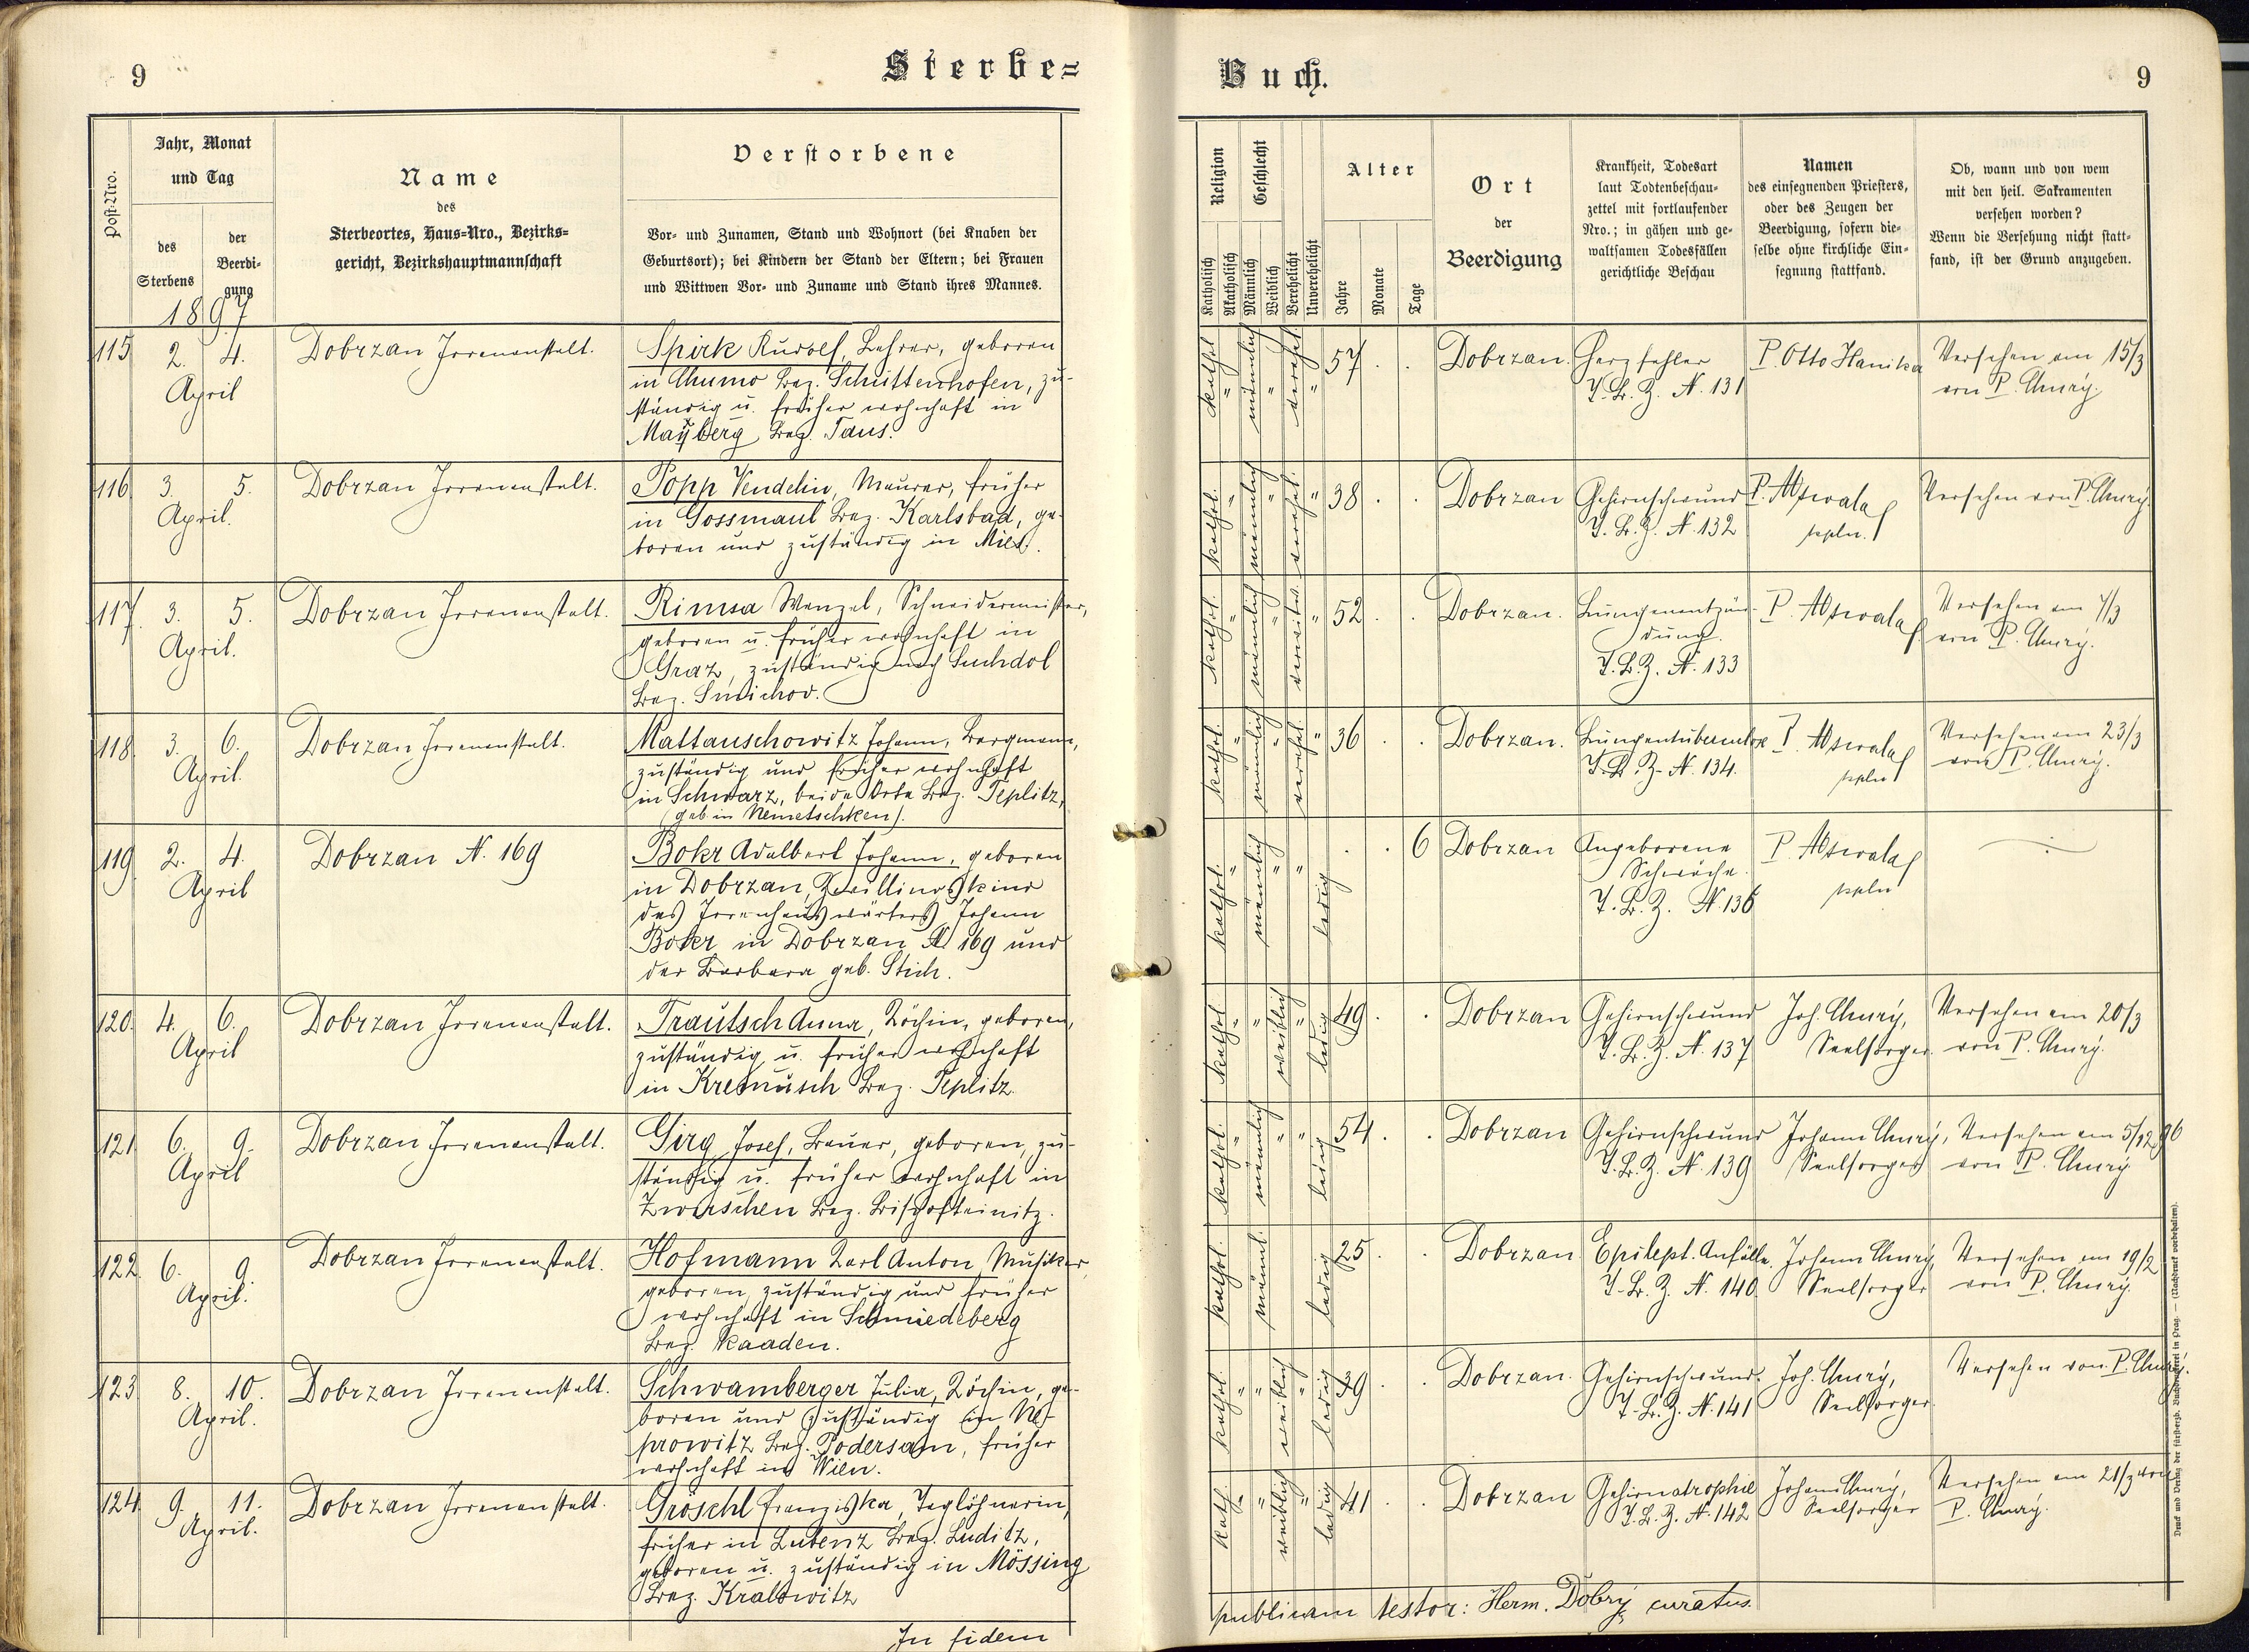 9
Sterbe=
Buch.
9
Post-Nro.
Jahr, Monat
und Tag
des
Sterbens
der
Beerdi-
gung
1897
Name
des
Sterbeortes, Haus-Nro., Bezirks-
gericht, Bezirkshauptmannschaft
Verstorbene
Vor- und Zunamen, Stand und Wohnort (bei Knaben der
Geburtsort); bei Kindern der Stand der Eltern; bei Frauen
und Wittwen Vor- und Zuname und Stand ihres Mannes.
Religion
Katholisch
Akatholisch
Geschlecht
Männlich
Weiblich
Verehelicht
Unverehelicht
Alter
Jahre
Monate
Tage
Ort
der
Beerdigung
Krankheit, Todesart
laut Todtenbeschau-
zettel mit fortlaufender
Nro.; in gähen und ge-
waltsamen Todesfällen
gerichtliche Beschau
Namen
des einsegnenden Priesters,
oder des Zeugen der
Beerdigung, sofern die-
selbe ohne kirchliche Ein-
segnung stattfand.
Ob, wann und von wem
mit den heil. Sakramenten
versehen worden?
Wenn die Versehung nicht statt-
fand, ist der Grund anzugeben.
115 2. 4. April
Dobrzan Irrenanstalt.
Spirk Rudolf, Lehrer, geboren
in Bez. Schüttenhofen, zu-
ständig u. früher wohnhaft in
Mayberg Bez. Taus.
kathol. " männlich " verehel. " 57 . .
Dobrzan.
Herzfehler
T. B. Z. N. 131
P. Otto Hanika
Versehen am 15/3
von P.
116 3. 5. April.
Dobrzan Irrenanstalt.
Popp Vendelin, Maurer, früher
in Gossmaul Bez. Karlsbad, ge-
boren und zuständig in
kathol. " männlich " verehel. " 38 . .
Dobrzan
Gehirnschwund
T. B. Z. N. 132
P.
Versehen von P.
117. 3. 5. April.
Dobrzan Irrenanstalt.
Rimsa Wenzel, Schneidermeister,
geboren u. früher wohnhaft in
Graz, zuständig nach Suchdol
Bez. Smichov.
kathol. " männlich " verwitw. " 52 . .
Dobrzan.
Lungenentzün-
dung.
T. B. Z. N. 133
P.
Versehen am
von P.
118. 3. 6. April.
Dobrzan Irrenanstalt.
Mattauschowitz Johann, Bergmann,
zuständig und früher wohnhaft
in Schwarz, beide Orte Bez. Teplitz,
(geb. in Nemetschken).
kathol. " männlich " verehel. " 36 . .
Dobrzan.
Lungentuberculose
T. B. Z. N. 134.
P.
Versehen am 23/3
von P.
119 2. 4. April
Dobrzan N. 169
Bokr Adalbert Johann, geboren
in Dobrzan, Zwillingskind
des Irrenhauswärters Johann
Bokr in Dobrzan N 169 und
der Barbara geb. Stich.
kathol. " männlich " " ledig . . 6
Dobrzan
Angeborene
Schwäche.
T. B. Z. N. 136
P.
120. 4. 6. April
Dobrzan Irrenanstalt.
Trautsch Anna, Köchin, geboren,
zuständig u. früher wohnhaft
in Kremusch Bez. Teplitz.
kathol. " " weiblich " ledig 49 . .
Dobrzan
Gehirnschwund
T. B. Z. N. 137
Joh.
Seelsorger.
Versehen am 20/3
von P.
121 6. 9. April
Dobrzan Irrenanstalt.
Girg Josef, Bauer, geboren, zu-
ständig u. früher wohnhaft in
Zwirschen Bez. Bischofteinitz.
kathol. " männlich " " ledig 54 . .
Dobrzan
Gehirnschwund
T. B. Z. N. 139
Johann
Seelsorger
Versehen am 5/12 96
von P.
122. 6. 9. April.
Dobrzan Irrenanstalt.
Hofmann Karl Anton, Musiker,
geboren, zuständig und früher
wohnhaft in Schmiedeberg
Bez. Kaaden.
kathol. männl. ledig 25 . .
Dobrzan
Epilept. Anfälle.
T. B. Z. N. 140.
Johann
Seelsorger
Versehen am 19/2
von P.
123 8. 10. April.
Dobrzan Irrenanstalt.
Schwamberger Julia, Köchin, ge-
boren und zuständig in Ne-
prowitz Bez. Podersam, früher
wohnhaft in Wien.
kathol. " " weiblich " ledig 39 . .
Dobrzan.
Gehirnschwund.
T. B. Z. N. 141
Joh.
Seelsorger.
Versehen von P.
124 9. 11. April.
Dobrzan Irrenanstalt.
Gröschl Franziska, Taglöhnerin,
früher in Lubenz Bez. Luditz,
geboren u. zuständig in Mössing
Bez. Kralowitz
kath. " " weiblich " ledig 41 . .
Dobrzan
Gehirnatrophie
T. B. Z. N. 142
Johann
Seelsorger
Versehen am 21/3 von
P.
In fidem
publicam testor: Herm. Dobrý, curatus.
Druck und Verlag der fürsterzb. Buchdruckerei in Prag. — (Nachdruck vorbehalten).